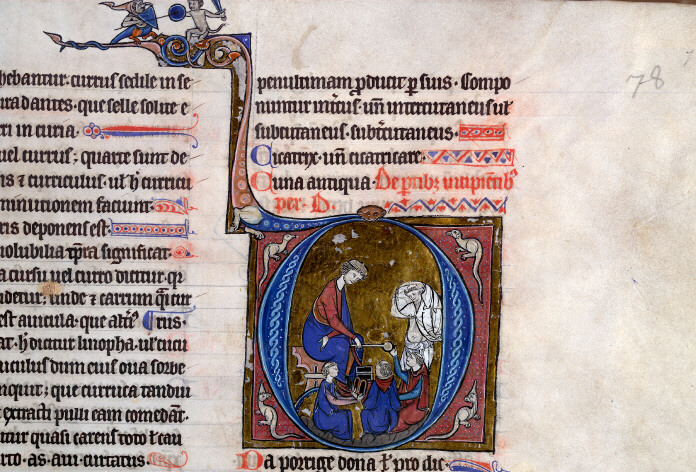 hebantur. currus sedile in se
ura dantes. que selle solute e
ri in curia.
uel currus; quarte sunt de
is ⁊ curriculus. ul' h̄ curricu
minutionem faciunt.
is deponens est.
uolubilia tp̄ra significat.
a cursu uel curro dicitur. qr̄
unde ⁊ carrum q̄ cur
est auicula. que
at. h̄ dicitur linopha. ul' cucu
uculus dum eius oua sorbe
nquit; que curruca tandiu
extracti pulli eam comedāt.
itur quasi carens toto ł cau
rto. as. aui curtatus.
penultimam ꝓducit ꝑ suis. Compo
nuntur int̉cus. un̄ intercutaneus ul'
subcutaneus. subt̉cutaneus.
Cicatrix. un̄ cicatricare.
Cuna antiqua. De ꝑtibꝫ incipientibꝫ
per. D.
Da porrige dona ł pro dic
78